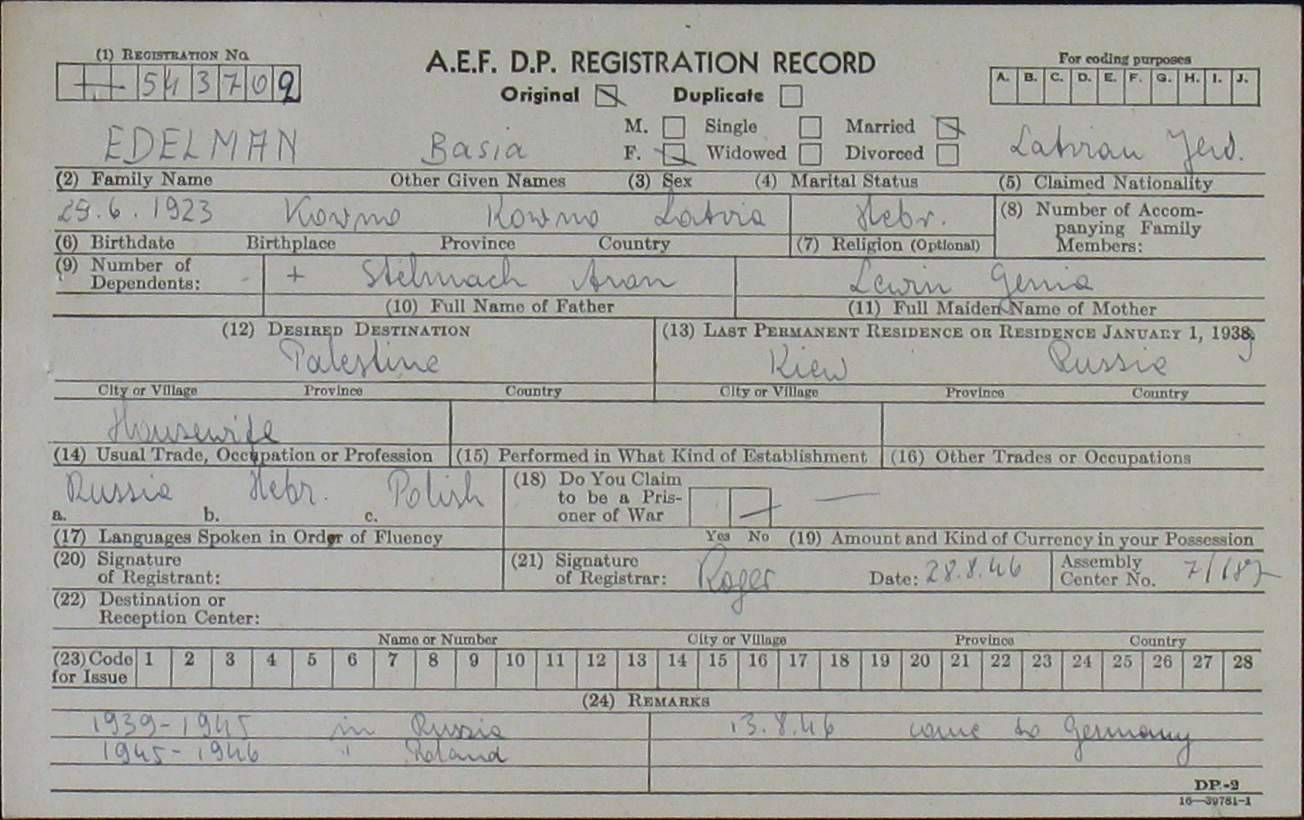 (1) REGISTRATION No.
A.E.F. D.P. REGISTRATION RECORD
For coding purposes
543709
A. B. C. D. E. F. G. H. I. J.
Original Duplicate
M. Single Married
EDELMAN Basia Latvian Jew.
F. Widowed Divorced
(2) Family Name Other Given Names (3) Sex (4) Marital Status (5) Claimed Nationality
29.6.1923 Kowno Kowno Latvia Hebr.
(8) Number of Accompanying Family Members:
(6) Birthdate Birthplace Province Country (7) Religion (Optional)
(9) Number of Dependents: - + Stelmach Aran Lewin Genia
(10) Full Name of Father (11) Full Maiden Name of Mother
(12) DESIRED DESTINATION (13) LAST PERMANENT RESIDENCE OR RESIDENCE JANUARY 1, 1938.
Palestine Kiew Russia
City or Village Province Country City or Village Province Country
Housewife
(14) Usual Trade, Occupation or Profession (15) Performed in What Kind of Establishment (16) Other Trades or Occupations
Russia Hebr. Polish
(18) Do You Claim to be a Prisoner of War —
a. b. c.
(17) Languages Spoken in Order of Fluency Yes No (19) Amount and Kind of Currency in your Possession
(20) Signature of Registrant: (21) Signature of Registrar: Roger Date: 28.8.46 Assembly Center No. 7/187
(22) Destination or Reception Center:
Name or Number City or Village Province Country
(23) Code for Issue 1 2 3 4 5 6 7 8 9 10 11 12 13 14 15 16 17 18 19 20 21 22 23 24 25 26 27 28
(24) REMARKS
1939-1945 in Russia 13.8.46 came to Germany
1945-1946 " Poland
DP-2
16—39781-1